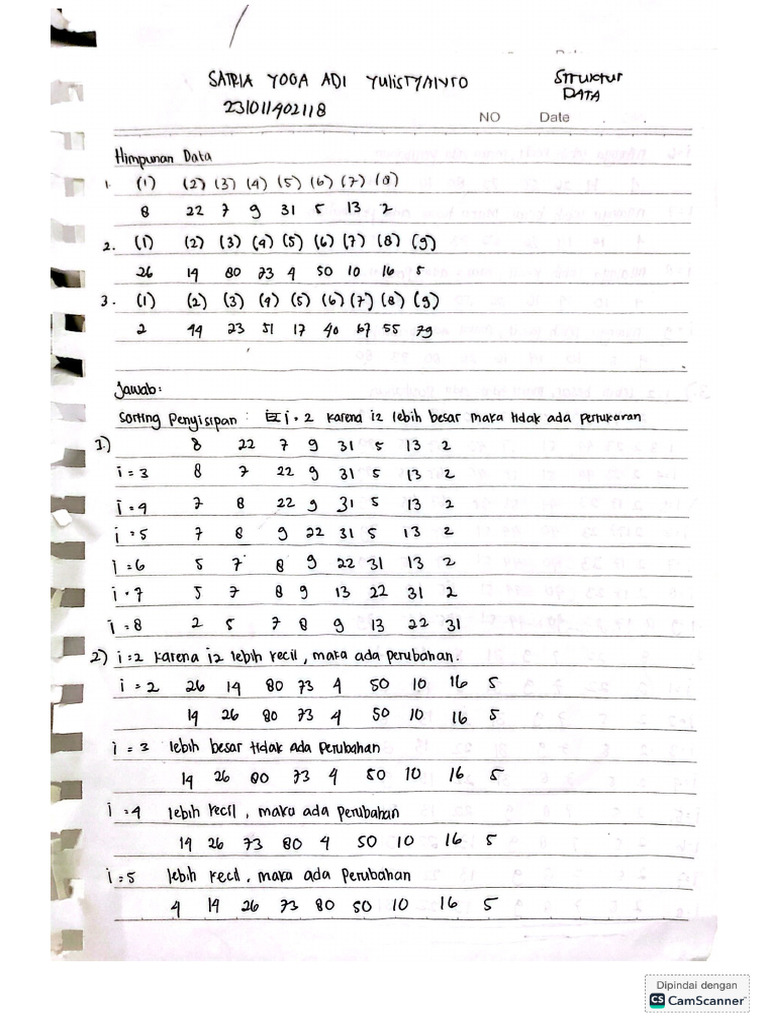 SATRIA YOGA ADI YULISTYAIVTO
STRUKTUR
DATA
231011402118
NO Date . .
Himpunan Data
1. (1) (2) (3) (4) (5) (6) (7) (8)
8 22 7 9 31 5 13 2
2. (1) (2) (3) (4) (5) (6) (7) (8) (9)
26 19 80 73 4 50 10 16 5
3. (1) (2) (3) (4) (5) (6) (7) (8) (9)
2 44 23 51 17 40 67 55 79
Jawab:
Sorting Penyisipan : i = 2 karena i2 lebih besar maka tidak ada pertukaran
1.) 8 22 7 9 31 5 13 2
i = 3 8 7 22 9 31 5 13 2
i = 4 7 8 22 9 31 5 13 2
i = 5 7 8 9 22 31 5 13 2
i = 6 5 7 8 9 22 31 13 2
i = 7 5 7 8 9 13 22 31 2
i = 8 2 5 7 8 9 13 22 31
2) i = 2 karena i2 lebih kecil, maka ada perubahan.
i = 2 26 19 80 73 4 50 10 16 5
19 26 80 73 4 50 10 16 5
i = 3 lebih besar tidak ada perubahan
19 26 80 73 4 50 10 16 5
i = 4 lebih kecil, maka ada perubahan
19 26 73 80 4 50 10 16 5
i = 5 lebih kecil, maka ada perubahan
4 19 26 73 80 50 10 16 5
Dipindai dengan
CS CamScanner